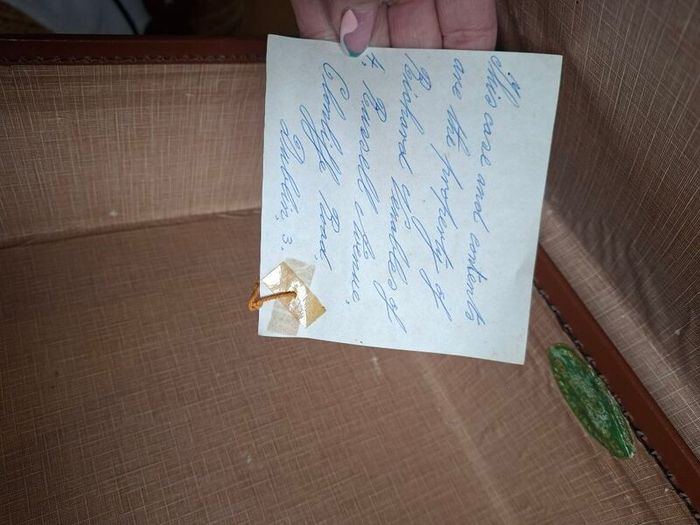 This case and contents
are the property of
Richard
4. Russell Avenue,
Clonliffe Road,
Dublin, 3.